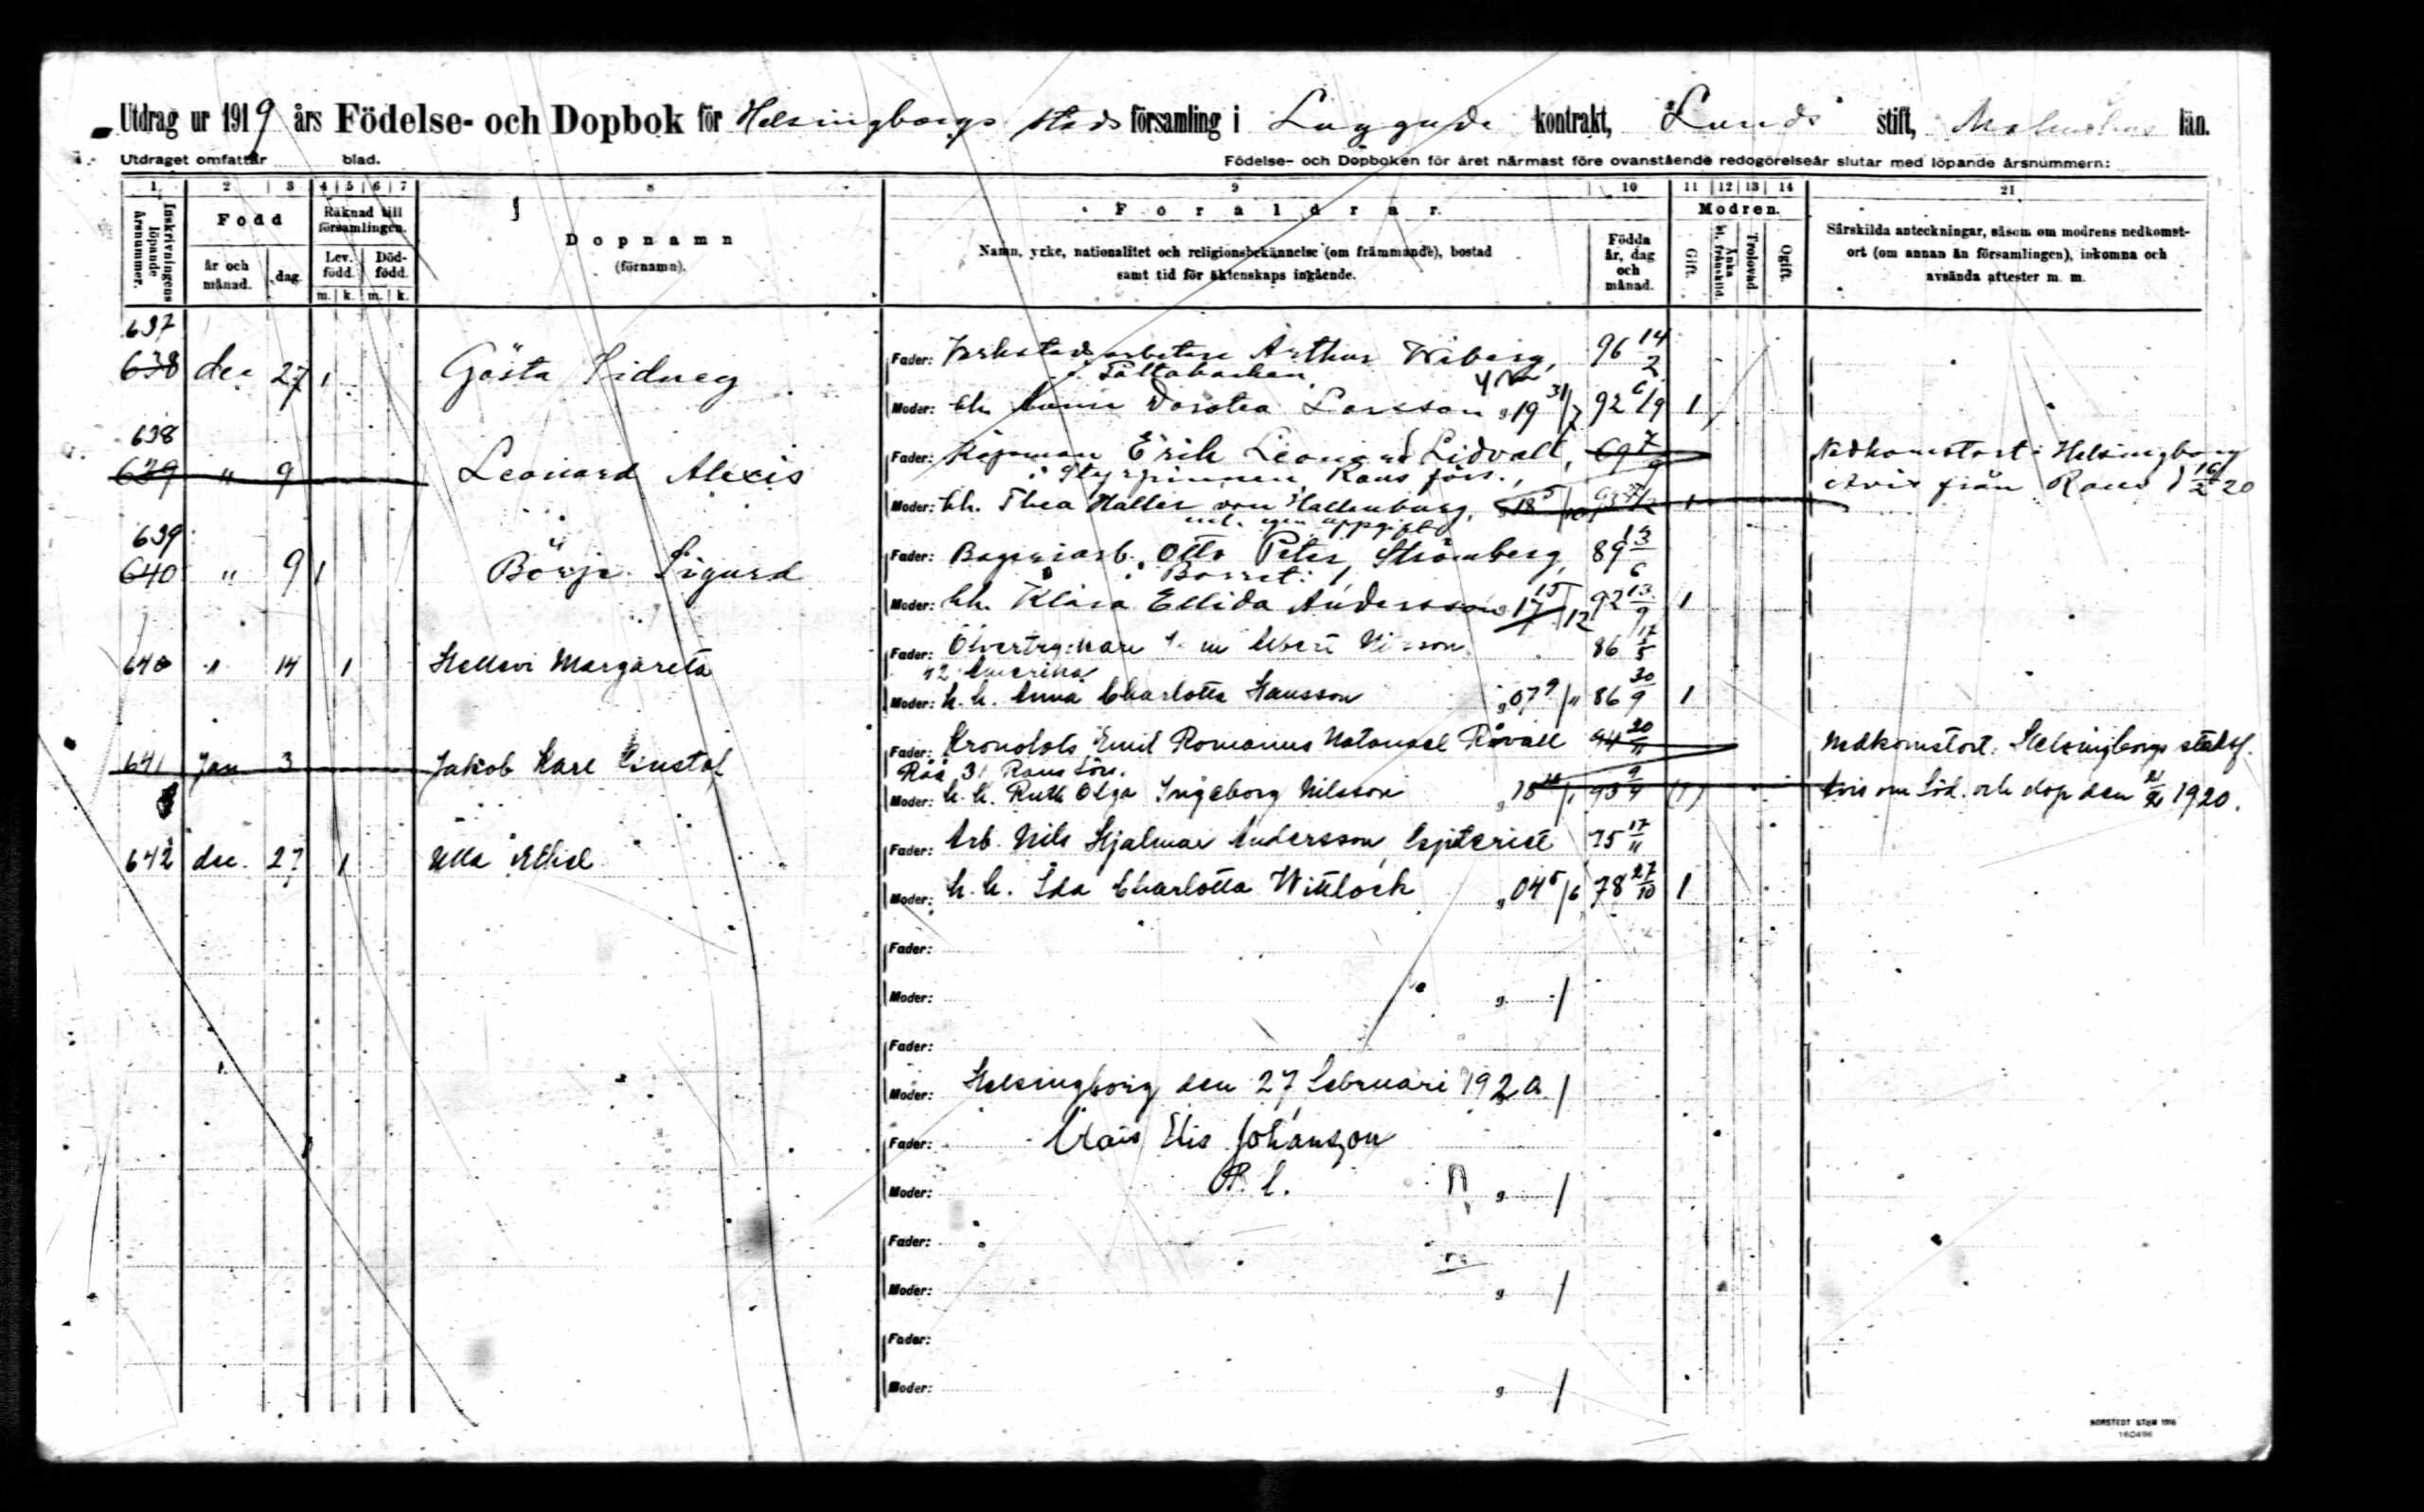 Utdrag ur 1919 års Födelse- och Dopbok för Helsingborgs stads församling i Luggude kontrakt, Lunds stift, Malmöhus län.
Utdraget omfattar blad. Födelse- och Dopboken för året närmast före ovanstående redogörelseår slutar med löpande årsnummern:
1 2 3 4 5 6 7 8 9 10 11 12 13 14 21
Inskrivningens löpande årsnummer.
Född
år och månad.
dag.
Räknad till församlingen.
Lev. född.
Död-född.
m. k. m. k.
Dopnamn
(förnamn).
Föräldrar.
Namn, yrke, nationalitet och religionsbekännelse (om främmande), bostad
samt tid för äktenskaps ingående.
Födda år, dag och månad.
Modren.
Gift.
Änka l. frånskild.
Trolovad.
Ogift.
Särskilda anteckningar, såsom om modrens nedkomst-
ort (om annan än församlingen), inkomna och
avsända attester m. m.
637
638 dec 27 1 Gösta Sidney Fader: Verkstadsarbetare Arthur Wiberg, 96 14/2
Pålsjöbacken
Moder: h. Dorotea Larsson g. 19 31/7 92 6/9 1
638
639 " 9 Leonard Alexis Fader: Köpman Erik Leonard Lidvall, 69 7/9 Nedkomstort: Helsingborg
Styrpinnen, Raus förs.,
Moder: h. Thea Haller von Hallenburg, g. 18 5/10 1 Avis från Raus 16/2 20
enl. egen uppgift
639
640 " 9 1 Börje Sigurd Fader: Bageriarb. Otto Peter Strömberg, 89 13/6
Moder: h. Klara Ellida Andersson g. 17 15/12 92 13/9 1
640 " 14 1 Hellevi Margareta Fader: Albert Nilsson 86 17/5
12 Amerika
Moder: h. h. Anna Charlotta Hansson g. 07 9/11 86 30/9 1
641 Jan 3 Jakob Karl Gustaf Fader: Kronolots Emil Romanus Natanael Råvall 94 20/11 Nedkomstort: Helsingborgs stadsf.
Råå 31 Raus förs.
Moder: h. h. Ruth Olga Ingeborg Nilsson g. (1) Avis om föd. och dop den 1920.
642 dec. 27 1 Ulla Ethel Fader: Arb. Nils Hjalmar Andersson, 75 17/11
Moder: h. h. Ida Charlotta Wittlock g. 04 5/6 78 27/10 1
Fader:
Moder: g. /
Fader:
Moder: Helsingborg den 27 februari 1920 /
Fader: Clais Elis Johanson
Moder: P. l. g. /
Fader:
Moder: g. /
Fader:
Moder: g. /
NORSTEDT STHM 1916
160496